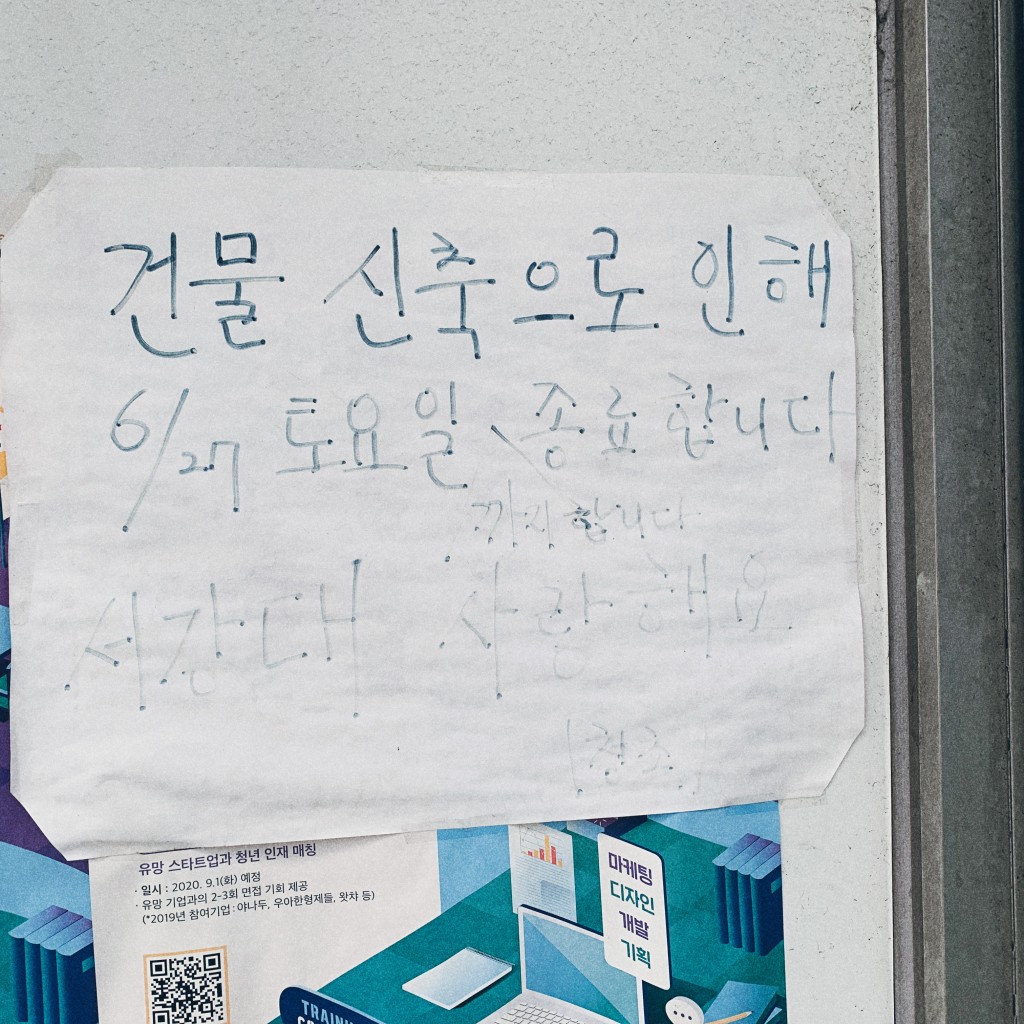 건물 신축으로 인해
6/27 토요일 종료합니다
까지합니다
서강대 사랑해요
유망 스타트업과 청년 인재 매칭
· 일시 : 2020. 9.1(화) 예정
· 유망 기업과의 2-3회 면접 기회 제공
(*2019년 참여기업 : 야나두, 우아한형제들, 왓챠 등)
마케팅
디자인
개발
기획